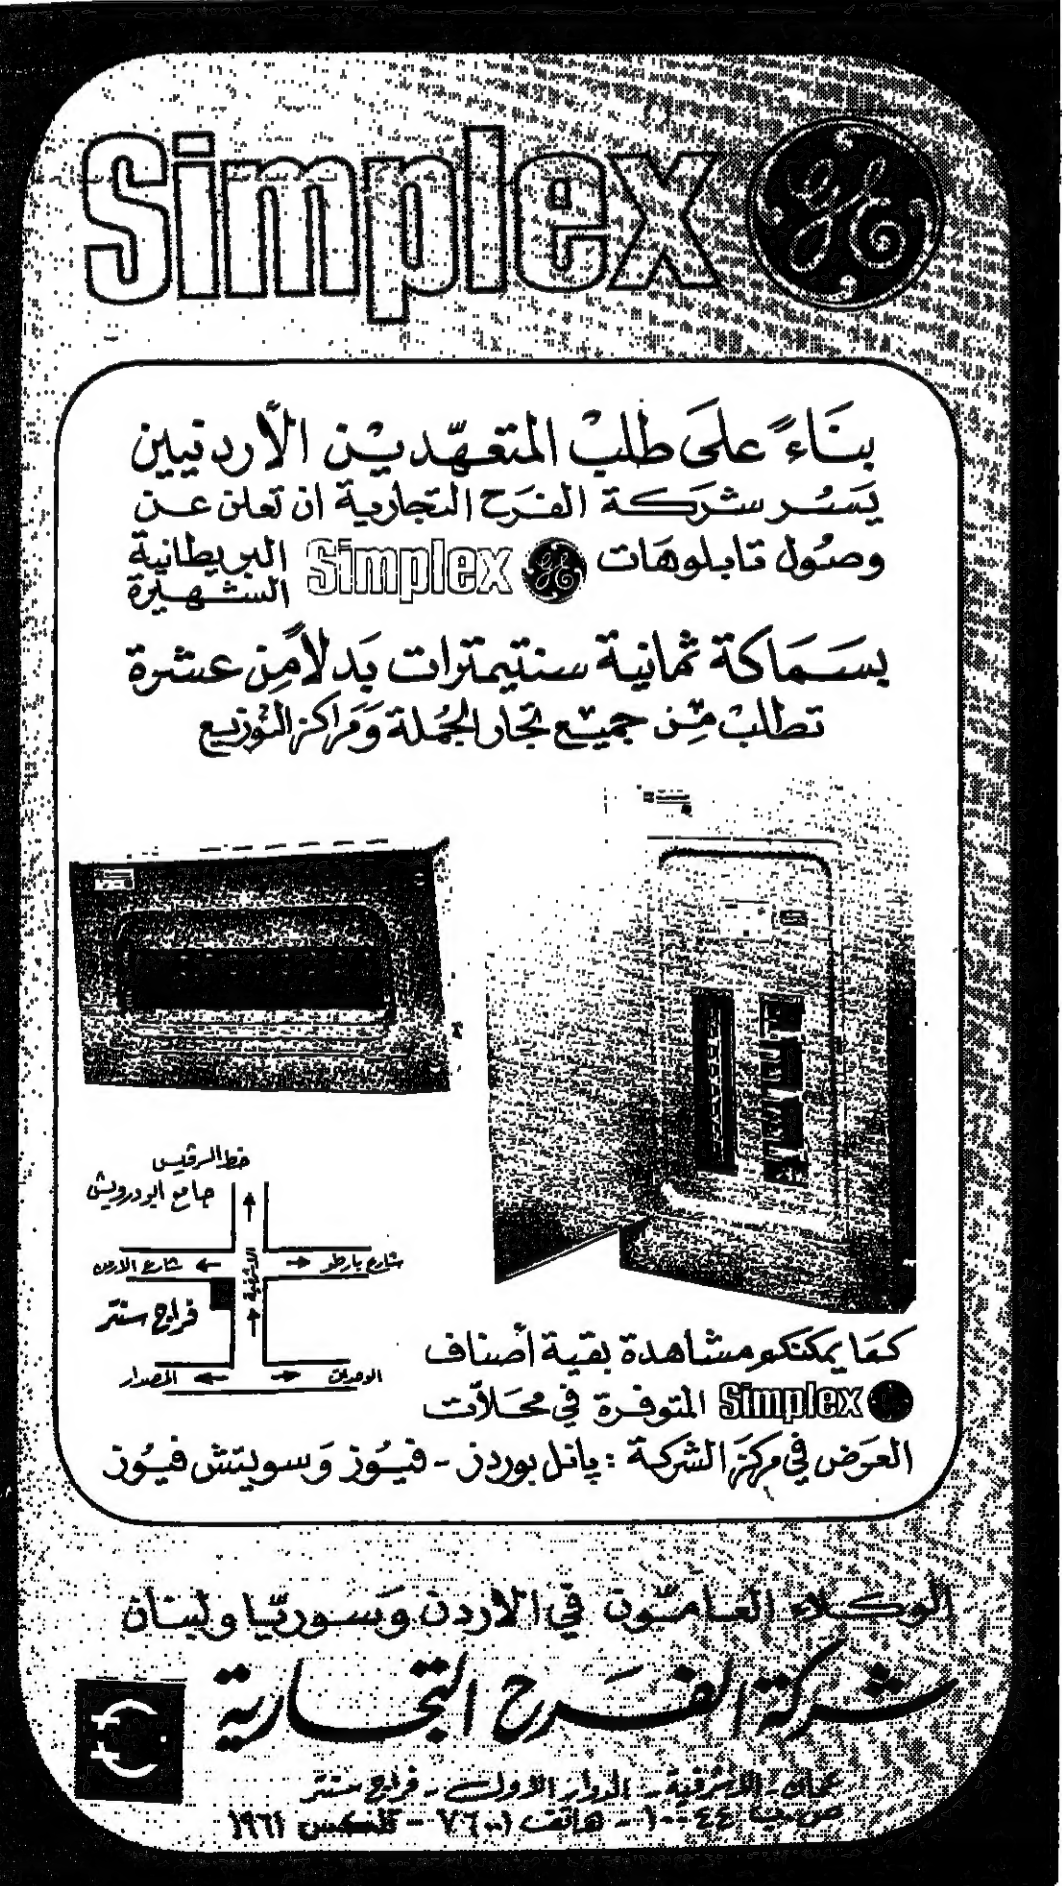 Simplex GE
بناءً على طلب المتعهّدين الأردنيين
يسُر شركة الفرح التجارية ان تعلن عن
وصُول تابلوهات GE Simplex البريطانية الشهيرة
بسَماكة ثمانية سنتيمترات بَدلاً مِن عشرة
تطلب مِن جميع تجار الجُملة وَمراكز التوزيع
خط الرئيس
جامع ابو درويش
شارع بارطو
الاشرفية
شارع الاردن
فراج سنتر
الوحدات
المصدار
كما يمكنكم مشاهدة بقية أصناف
GE Simplex المتوفرة في محلات
العرض في مركز الشركة : پانل بوردز - فيُوز وَسويتش فيُوز
الوكلاء العامّون في الاردن وَسوريّا ولبنان
شركة الفرح التجارية
عمان - الاشرفية - الدوار الاول - فراج سنتر
هاتف - تلكس ١٩٦١